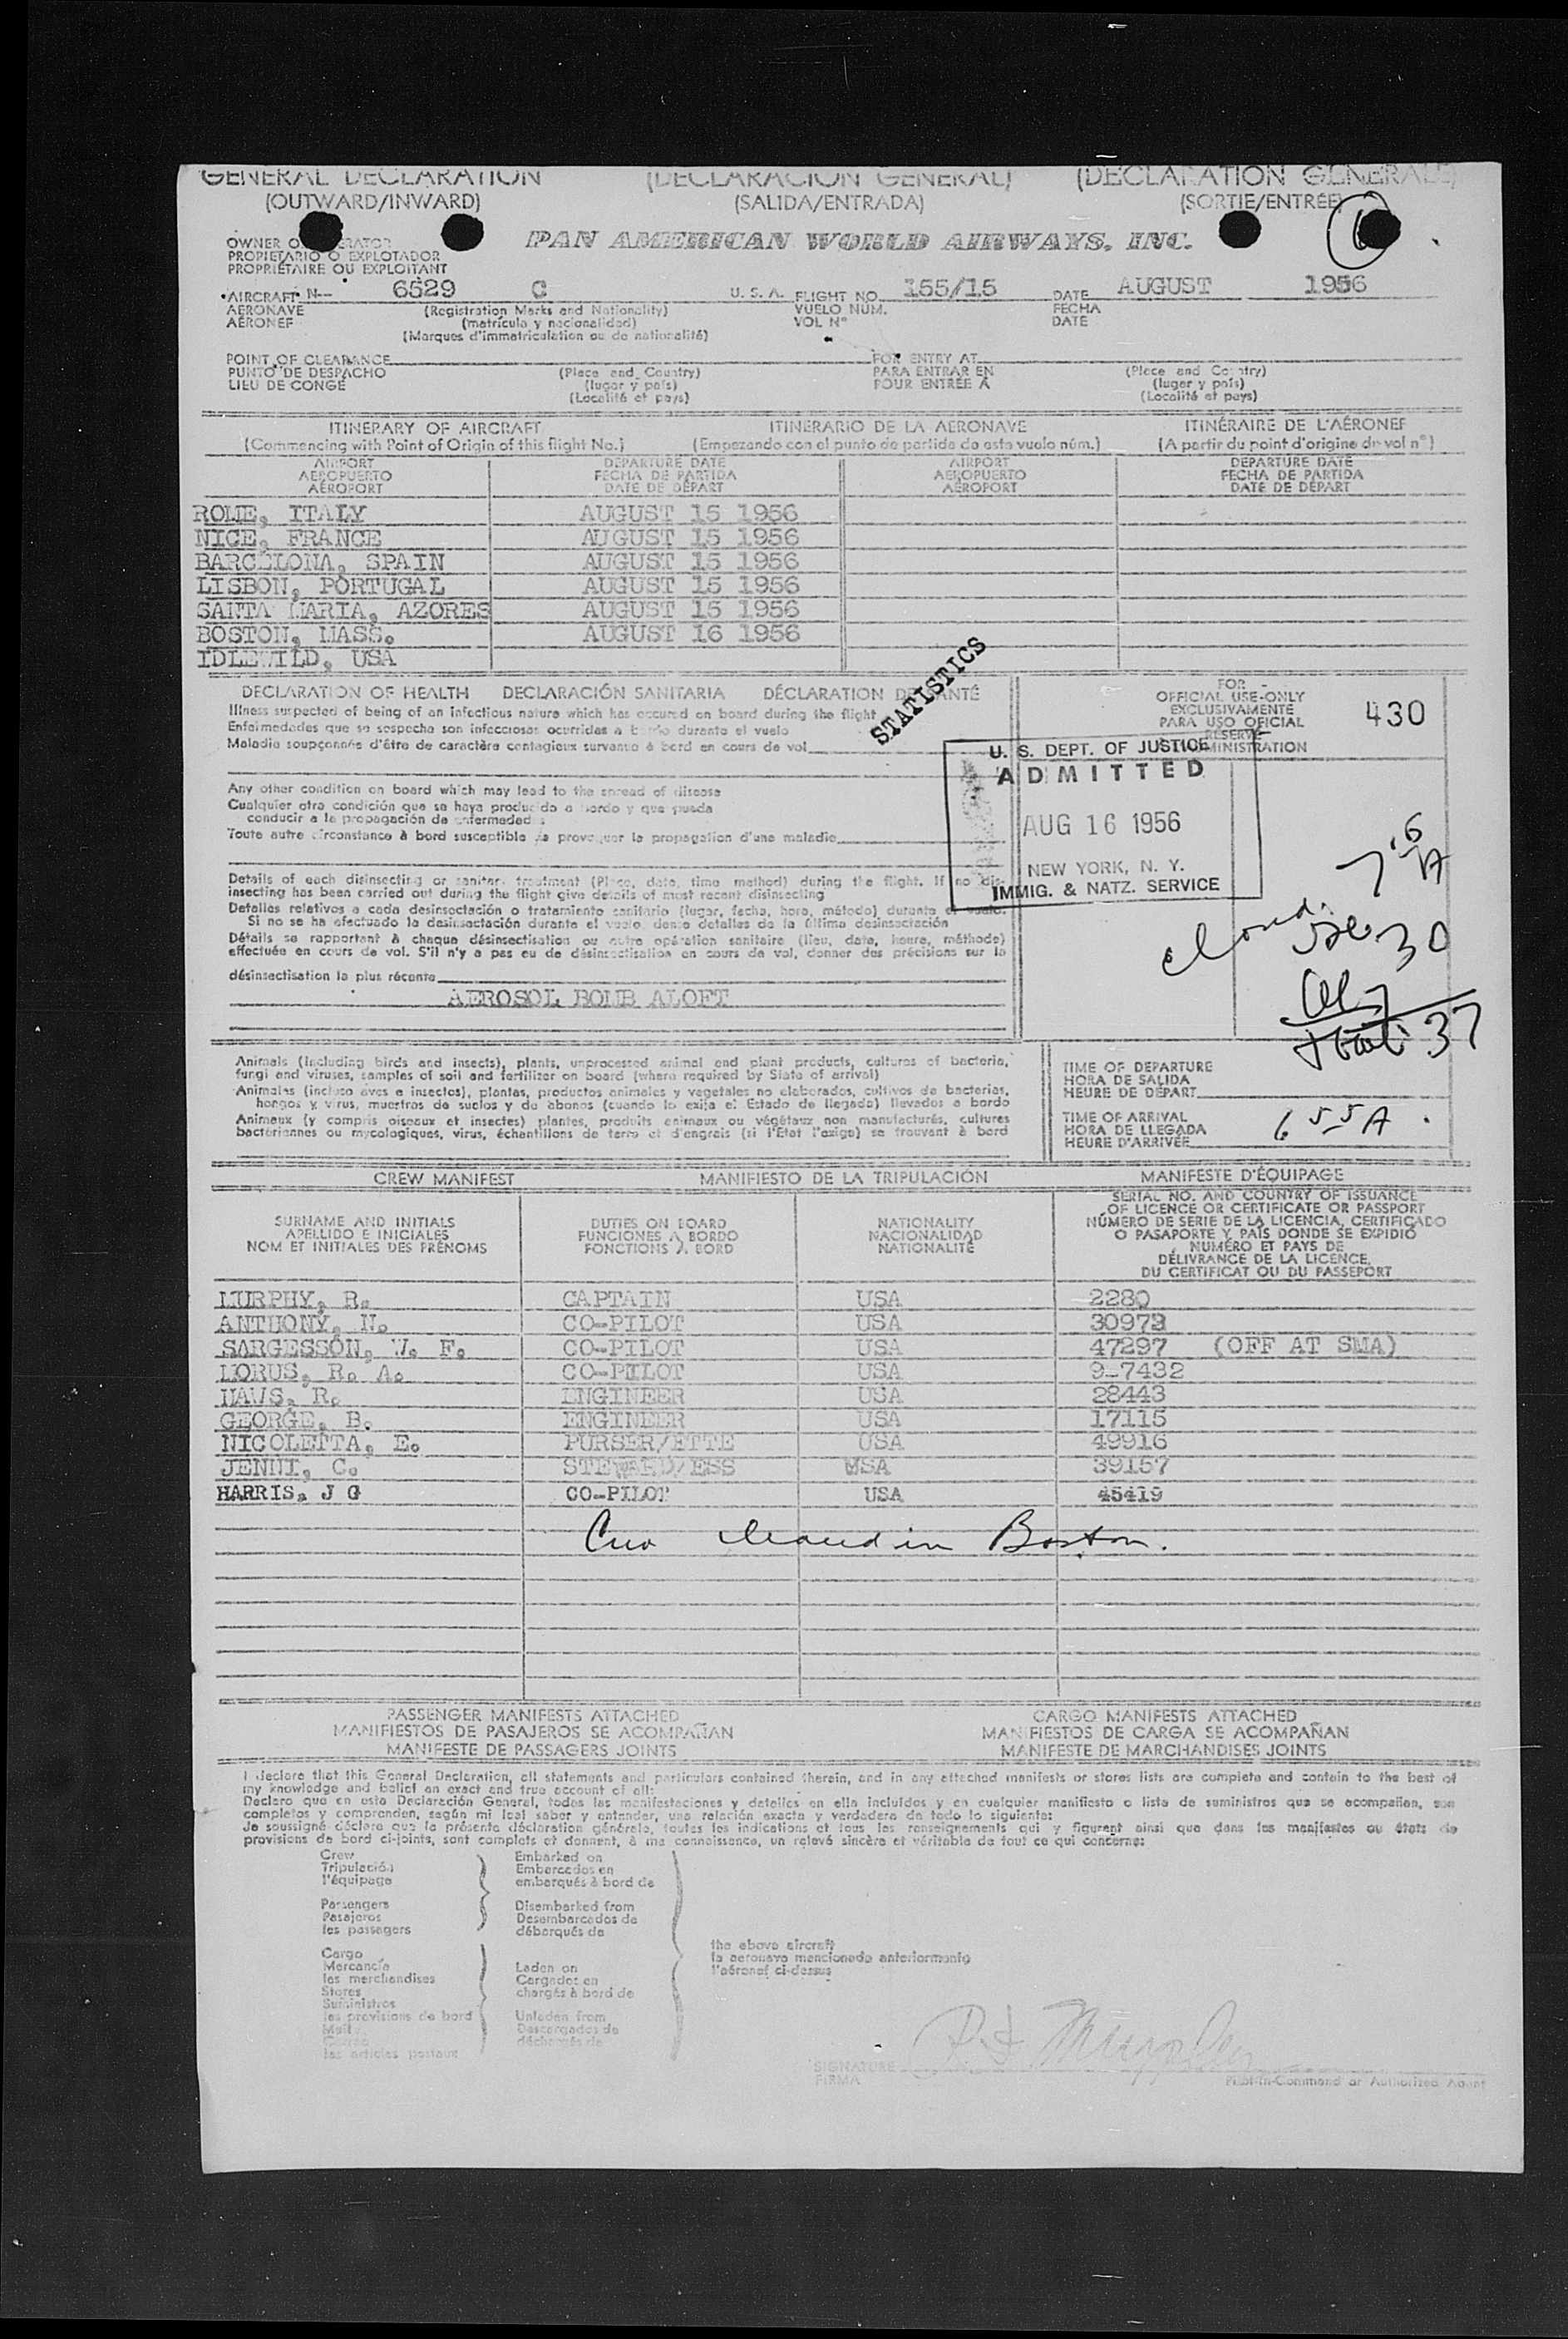 GENERAL DECLARATION (DECLARACION GENERAL) (DECLARATION GENERALE)
(OUTWARD/INWARD) (SALIDA/ENTRADA) (SORTIE/ENTRÉE)
OWNER O ERATOR PAN AMERICAN WORLD AIRWAYS, INC.
PROPIETARIO O EXPLOTADOR
PROPRIÉTAIRE OU EXPLOITANT
AIRCRAFT N-- 6529 C U. S. A. FLIGHT NO. 155/15 DATE AUGUST 1956
AERONAVE (Registration Marks and Nationality) VUELO NUM. FECHA
AÉRONEF (matrícula y nacionalidad) VOL Nº DATE
(Marques d'immatriculation ou de nationalité)
POINT OF CLEARANCE FOR ENTRY AT
PUNTO DE DESPACHO (Place and Country) PARA ENTRAR EN (Place and Country)
LIEU DE CONGÉ (lugar y país) POUR ENTRÉE À (lugar y país)
(Localité et pays) (Localité et pays)
ITINERARY OF AIRCRAFT ITINERARIO DE LA AERONAVE ITINÉRAIRE DE L'AÉRONEF
(Commencing with Point of Origin of this flight No.) (Empezando con el punto de partida de este vuelo núm.) (A partir du point d'origine du vol nº)
AIRPORT DEPARTURE DATE AIRPORT DEPARTURE DATE
AEROPUERTO FECHA DE PARTIDA AEROPUERTO FECHA DE PARTIDA
AÉROPORT DATE DE DÉPART AÉROPORT DATE DE DÉPART
ROME, ITALY AUGUST 15 1956
NICE, FRANCE AUGUST 15 1956
BARCELONA, SPAIN AUGUST 15 1956
LISBON, PORTUGAL AUGUST 15 1956
SANTA MARIA, AZORES AUGUST 15 1956
BOSTON, MASS. AUGUST 16 1956
IDLEWILD, USA
STATISTICS
DECLARATION OF HEALTH DECLARACIÓN SANITARIA DÉCLARATION DE SANTÉ
Illness suspected of being of an infectious nature which has occured on board during the flight
Enfermedades que se sospecha son infecciosas ocurridas a bordo durante el vuelo
Maladie soupçonnée d'être de caractère contagieux survenue à bord en cours de vol
FOR
OFFICIAL USE ONLY
EXCLUSIVAMENTE
PARA USO OFICIAL
RÉSERVÉ
ADMINISTRATION
430
U. S. DEPT. OF JUSTICE
ADMITTED
AUG 16 1956
NEW YORK, N. Y.
IMMIG. & NATZ. SERVICE
Any other condition on board which may lead to the spread of disease
Cualquier otra condición que se haya producido a bordo y que pueda
conducir a la propagación de enfermedades
Toute autre circonstance à bord susceptible de provoquer la propagation d'une maladie
Details of each disinsecting or sanitary treatment (Place, date, time method) during the flight. If no dis-
insecting has been carried out during the flight give details of most recent disinsecting
Detalles relativos a cada desinsectación o tratamiento sanitario (lugar, fecha, hora, método) durante el vuelo.
Si no se ha efectuado la desinsectación durante el vuelo, dense detalles de la última desinsectación
Détails se rapportant à chaque désinsectisation ou autre opération sanitaire (lieu, date, heure, méthode)
effectuée en cours de vol. S'il n'y a pas eu de désinsectisation en cours de vol, donner des précisions sur la
désinsectisation la plus récente
AEROSOL BOMB ALOFT
30
37
Animals (Including birds and insects), plants, unprocessed animal and plant products, cultures of bacteria,
fungi and viruses, samples of soil and fertilizer on board (where required by State of arrival)
Animales (incluso aves e insectos), plantas, productos animales y vegetales no elaborados, cultivos de bacterias,
hongos y virus, muestras de suelos y de abonos (cuando lo exija el Estado de llegada) llevados a bordo
Animaux (y compris oiseaux et insectes) plantes, produits animaux ou végétaux non manufacturés, cultures
bactériennes ou mycologiques, virus, échantillons de terre et d'engrais (si l'État l'exige) se trouvant à bord
TIME OF DEPARTURE
HORA DE SALIDA
HEURE DE DÉPART
TIME OF ARRIVAL
HORA DE LLEGADA 6 55A
HEURE D'ARRIVÉE
CREW MANIFEST MANIFIESTO DE LA TRIPULACIÓN MANIFESTE D'ÉQUIPAGE
SURNAME AND INITIALS DUTIES ON BOARD NATIONALITY
APELLIDO E INICIALES FUNCIONES A BORDO NACIONALIDAD
NOM ET INITIALES DES PRÉNOMS FONCTIONS À BORD NATIONALITÉ
SERIAL NO. AND COUNTRY OF ISSUANCE
OF LICENCE OR CERTIFICATE OR PASSPORT
NÚMERO DE SERIE DE LA LICENCIA, CERTIFICADO
O PASAPORTE Y PAÍS DONDE SE EXPIDIÓ
NUMÉRO ET PAYS DE
DÉLIVRANCE DE LA LICENCE,
DU CERTIFICAT OU DU PASSEPORT
MURPHY, R. CAPTAIN USA 2280
ANTHONY, N. CO-PILOT USA 30973
SARGESSON, W. F. CO-PILOT USA 47297 (OFF AT SMA)
MORUS, R. A. CO-PILOT USA 9-7432
HAWS, R. ENGINEER USA 28443
GEORGE, B. ENGINEER USA 17115
NICOLETTA, E. PURSER/ETTE USA 49916
JENNI, C. STEWARD/ESS USA 39157
HARRIS, J G CO-PILOT USA 45419
Crew cleared in Boston.
PASSENGER MANIFESTS ATTACHED CARGO MANIFESTS ATTACHED
MANIFIESTOS DE PASAJEROS SE ACOMPAÑAN MANIFIESTOS DE CARGA SE ACOMPAÑAN
MANIFESTE DE PASSAGERS JOINTS MANIFESTE DE MARCHANDISES JOINTS
I declare that this General Declaration, all statements and particulars contained therein, and in any attached manifests or stores lists are complete and contain to the best of
my knowledge and belief an exact and true account of all:
Declaro que en esta Declaración General, todas las manifestaciones y detalles en ella incluidos y en cualquier manifiesto o lista de suministros que se acompañan, son
completos y comprenden, según mi leal saber y entender, una relación exacta y verdadera de todo lo siguiente:
Je soussigné déclare que la présente déclaration générale, toutes les indications et tous les renseignements qui y figurent ainsi que dans les manifestes ou états de
provisions de bord ci-joints, sont complets et donnent, à ma connaissance, un relevé sincère et véritable de tout ce qui concerne:
Crew Embarked on
Tripulación Embarcados en
l'équipage embarqués à bord de
Passengers Disembarked from
Pasajeros Desembarcados de
les passagers débarqués de
the above aircraft
la aeronave mencionada anteriormente
l'aéronef ci-dessus
Cargo
Mercancía Laden on
les merchandises Cargados en
Stores chargés à bord de
Suministros
les provisions de bord Unladen from
Mail Descargados de
Correo déchargés de
les articles postaux
SIGNATURE
FIRMA Pilot-in-Command or Authorized Agent